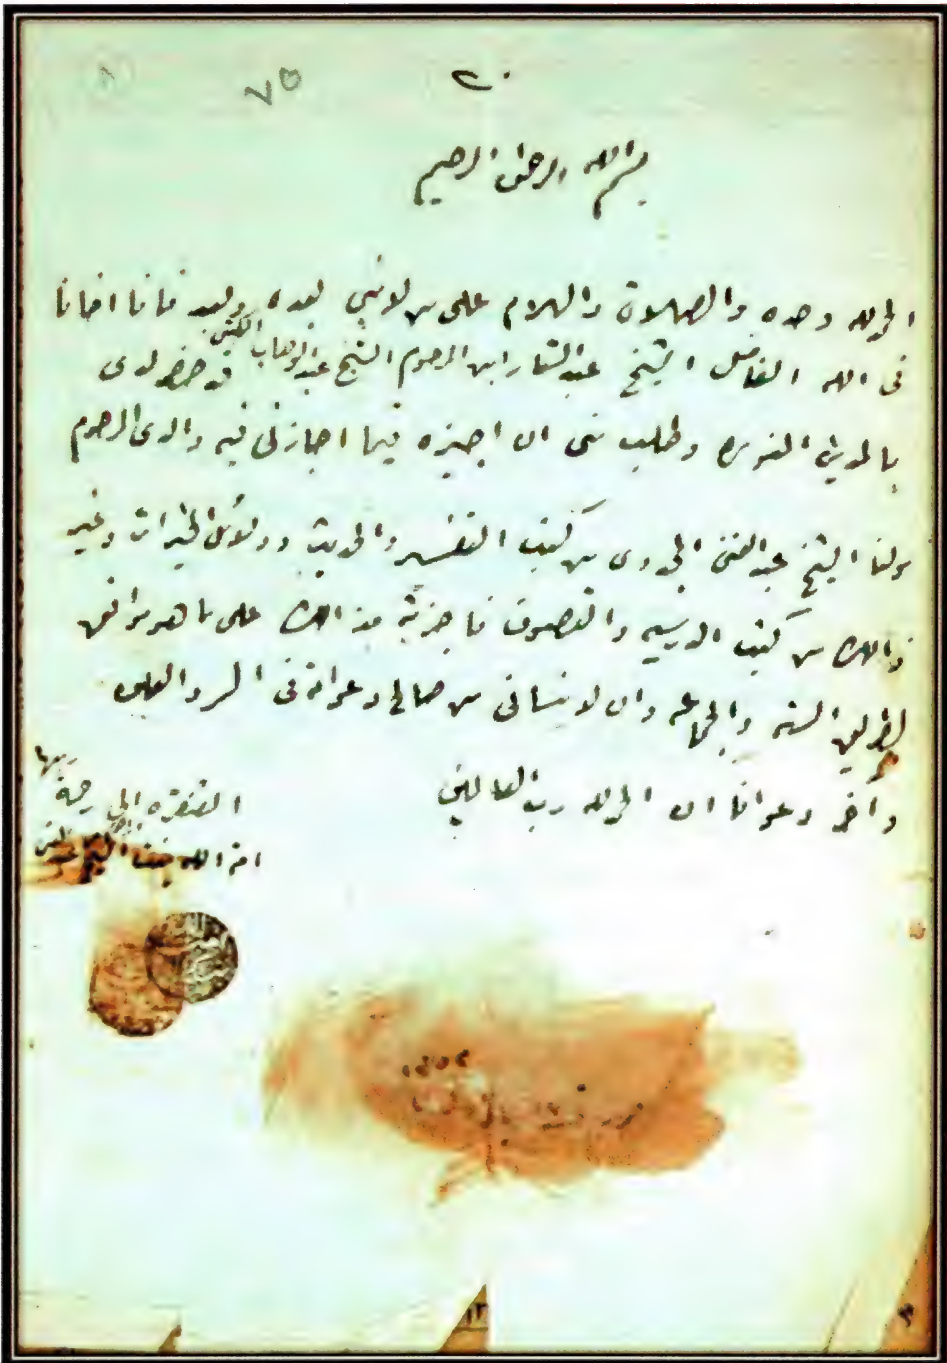 ٢٠
٧٥
بسم الله الرحمن الرحيم
الحمد لله وحده والصلاة والسلام على من لا نبي بعده وبعد فانا اخانا
في الله الفاضل الشيخ عبد الستار ابن المرحوم الشيخ عبد الوهاب الكتبي قد حضر لدى
بالمدينة المنوره وطلب مني ان اجيزه فيما اجازني فيه والدى المرحوم
مولنا الشيخ عبد الغني المجددى من كتب التفسير والحديث ودلائل الخيرات وغير
ذالك من كتب الدرسيه والتصوف فاجزته بذالك على ما هو موافق
لطريق السنه والجماعه وان لا ينساني من صالح دعواته في السر والعلن
وآخر دعوانا ان الحمد لله رب العالمين
الفقيره الى رحمة ربها
امة الله بنت الشيخ عبد الغني